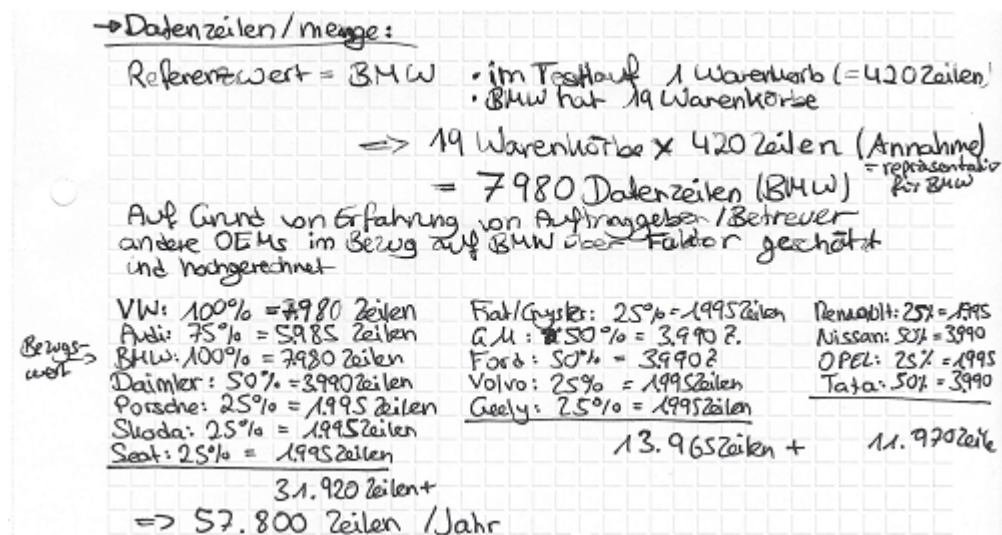 → Datenzeilen/menge:
Referenzwert = BMW • im Testlauf 1 Warenkorb (= 420 Zeilen)
• BMW hat 19 Warenkörbe
=> 19 Warenkörbe x 420 Zeilen (Annahme)
= repräsentativ für BMW
= 7980 Datenzeilen (BMW)
Auf Grund von Erfahrung von Auftraggeber/Betreuer
andere OEMs im Bezug auf BMW über Faktor geschätzt
und hochgerechnet
VW: 100% = 7980 Zeilen
Audi: 75% = 5985 Zeilen
Bezugswert → BMW: 100% = 7980 Zeilen
Daimler: 50% = 3990 Zeilen
Porsche: 25% = 1995 Zeilen
Skoda: 25% = 1995 Zeilen
Seat: 25% = 1995 Zeilen
31.920 Zeilen +
Fiat/Crysler: 25% = 1995 Zeilen
GM: 50% = 3.990 Z.
Ford: 50% = 3990 Z
Volvo: 25% = 1995 Zeilen
Geely: 25% = 1995 Zeilen
13.965 Zeilen +
Renault: 25% = 1995
Nissan: 50% = 3990
OPEL: 25% = 1995
Tata: 50% = 3990
11.970 Zeile
=> 57.800 Zeilen / Jahr